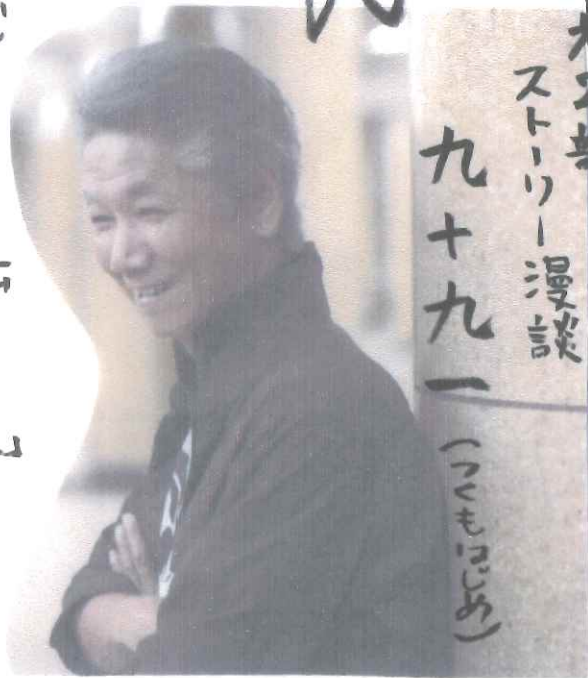 ストーリー漫談
九十九一
(つくもはじめ)